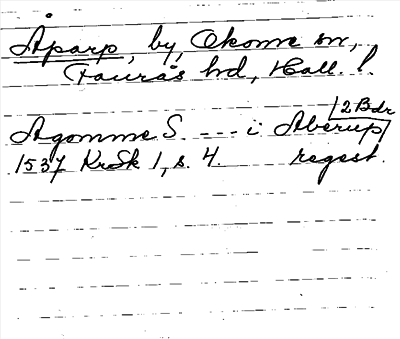 Åparp, by, Okome sn,
Faurås hd, Hall. l.
Agomme S. --- i Aberup
2 Bdr
1537 KrSk 1, s. 4. regest.